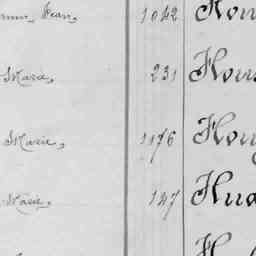 Jean, 1042 Hou
Marie, 231 Hou
Marie, 1176 Hou
Marie, 147 Hua